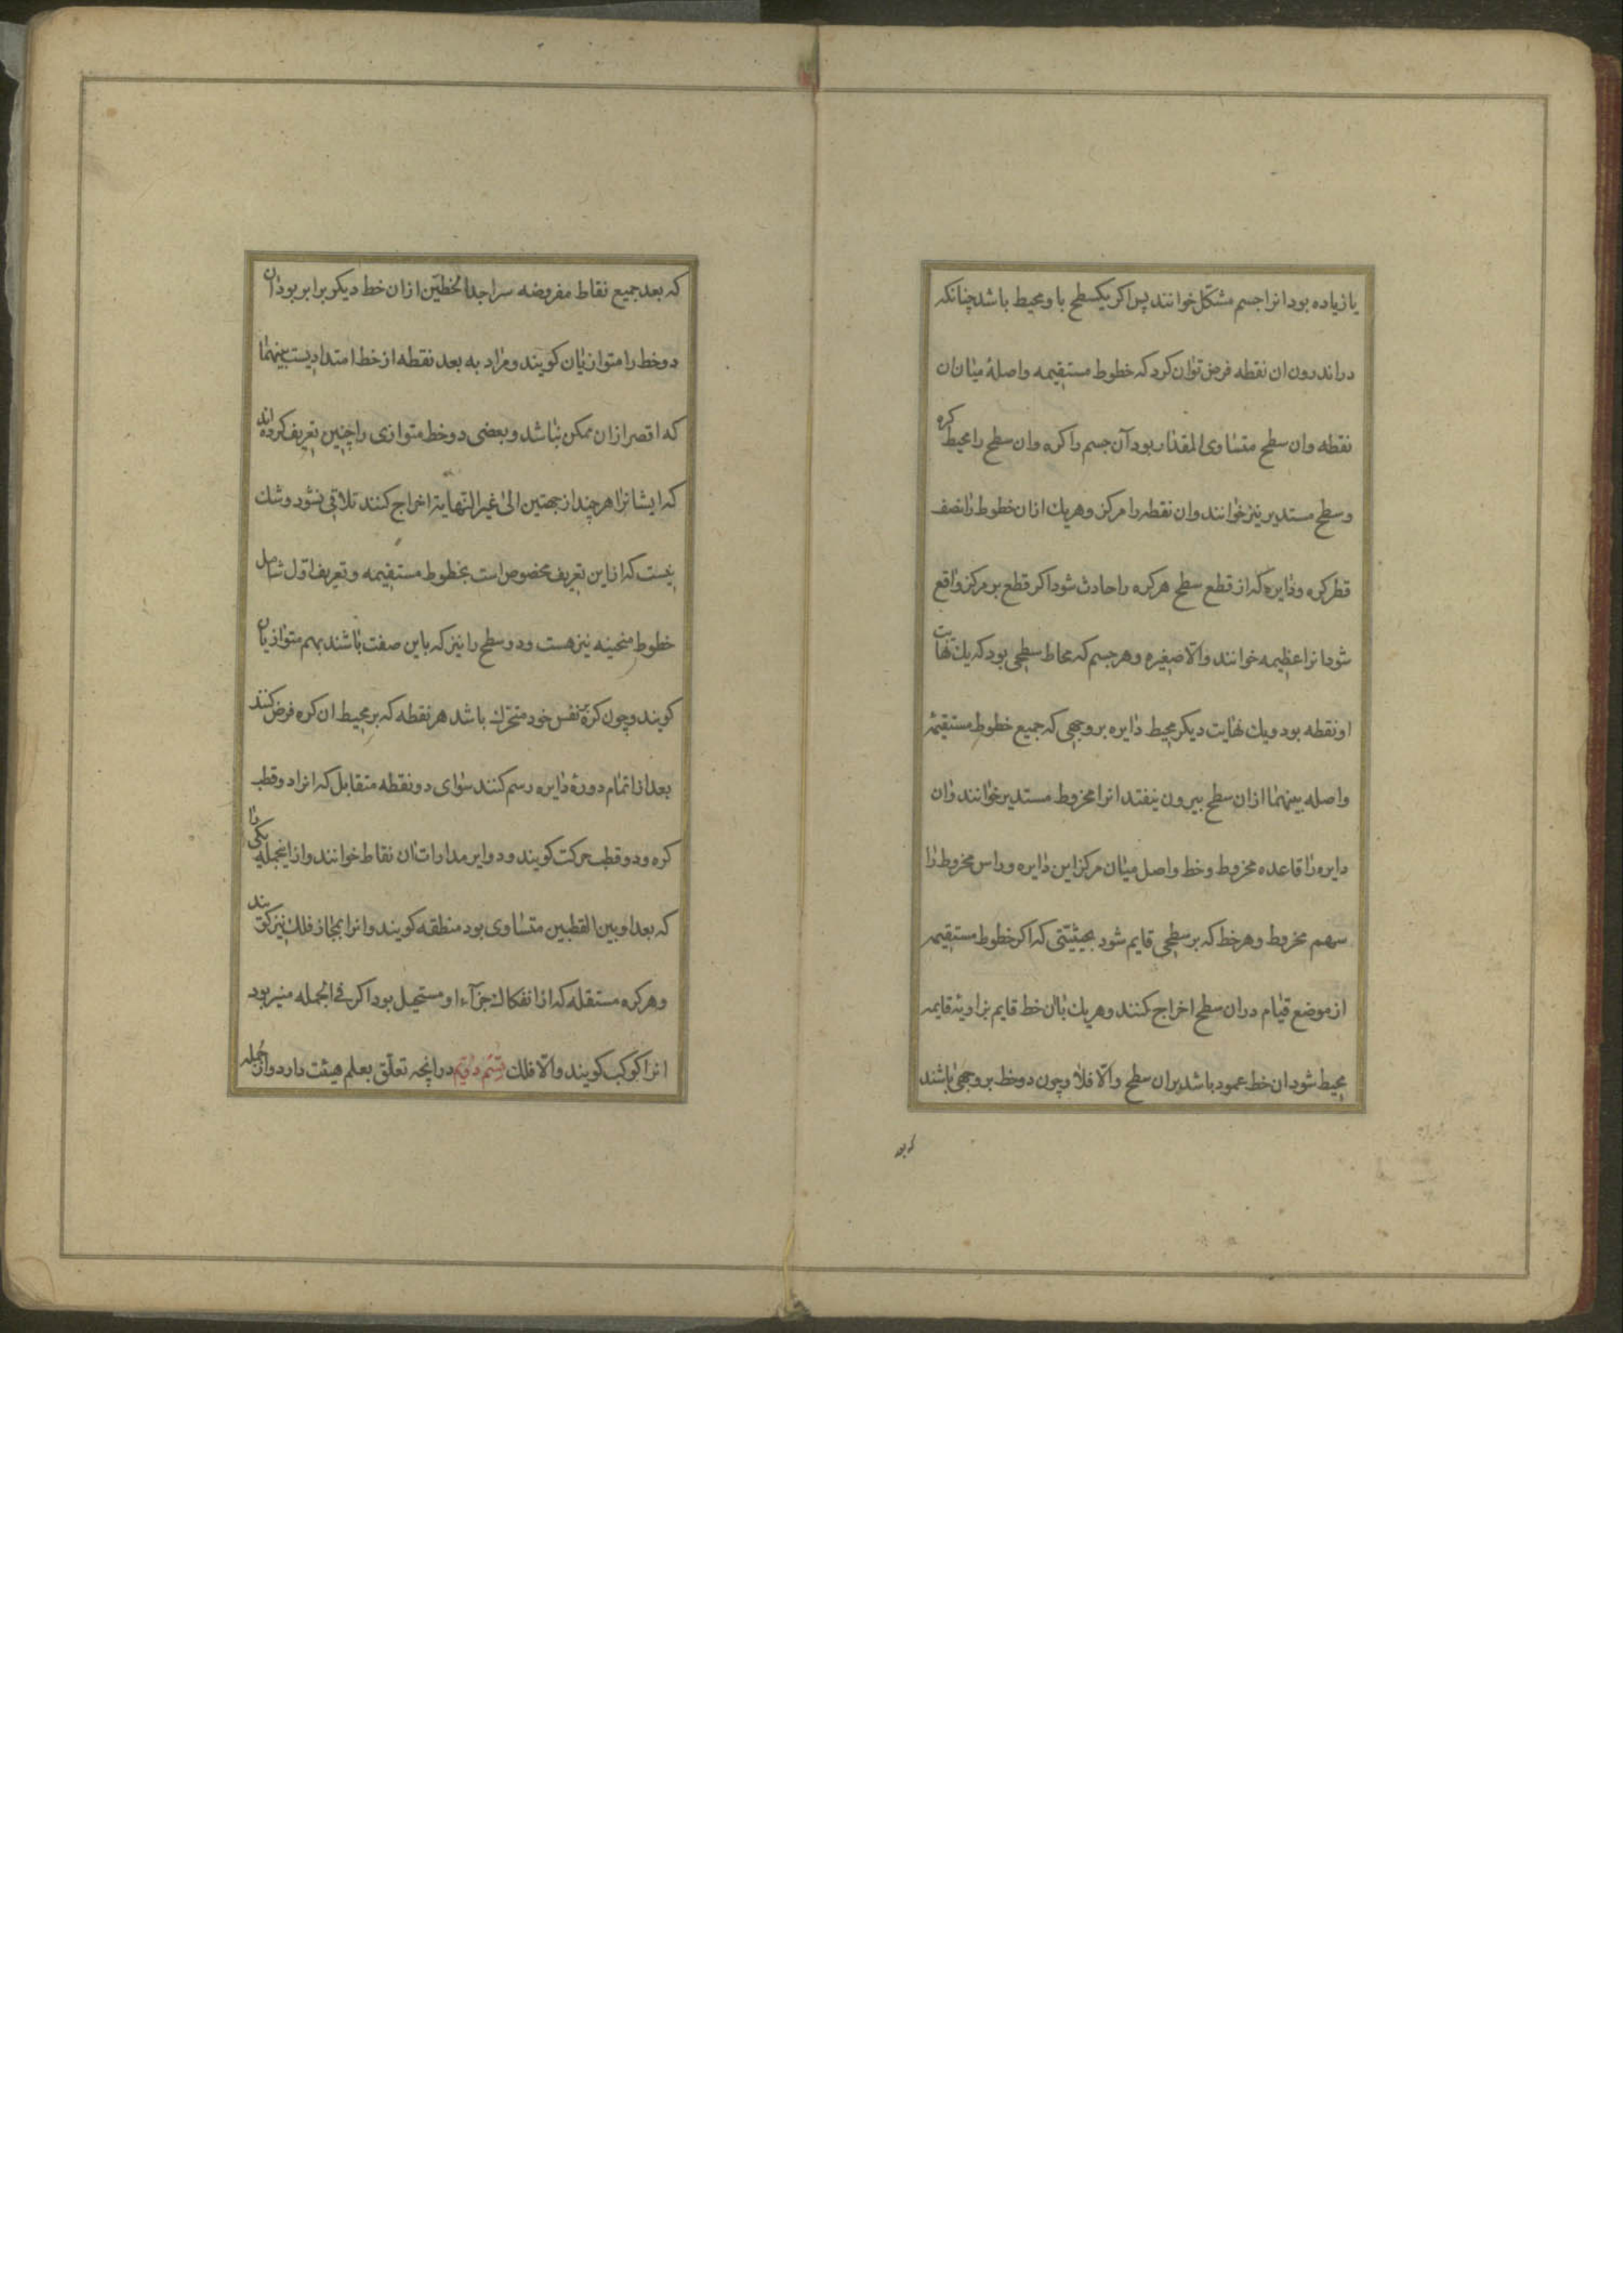 یا زیاده بود انرا جسم مشکل خوانند پس اکر یکسطح با و محیط باشد چنانکه
در اندرون ان نقطه فرض توان کرد که خطوط مستقیمه واصلهٔ میان ان
نقطه وان سطح متساوی المقدار بود آن جسم را کره وان سطح را محیط کره
و سطح مستدیر نیز خوانند وان نقطه را مرکز و هریك ازان خطوط را نصف
قطر کره و دایره که از قطع سطح هر کره را حادث شود اکر قطع بر مرکز واقع
شود انرا عظیمه خوانند والّا صغیره و هر جسم که محاط سطحی بود که یك نهایت
او نقطه بود و یك نهایت دیکر محیط دایره بر وجهی که جمیع خطوط مستقیمه
واصله بینهما ازان سطح بیرون نیفتد انرا مخروط مستدیر خوانند وان
دایره را قاعده مخروط و خط واصل میان مرکز این دایره و راس مخروط را
سهم مخروط و هر خط که بر سطحی قایم شود بحیثیتی که اکر خطوط مستقیمه
از موضع قیام دران سطح اخراج کنند و هریك باان خط قایم بزاویهٔ قایمه
محیط شود ان خط عمود باشد بران سطح والّا فلا و چون دو خط بر وجهی باشند
که بعد
که بعد جمیع نقاط مفروضه سر احدا لخطّین ازان خط دیکر برابر بود ان
دو خط را متوازیان کویند و مراد به بعد نقطه از خط امتدادیست بینهما
که اقصر ازان ممکن نباشد و بعضی دو خط متوازی را چنین تعریف کرده اند
که ایشانرا هر چند از جهتین الی غیر النهایة اخراج کنند تلاقی نشود و شك
نیست که از این تعریف مخصوص است بخطوط مستقیمه و تعریف اوّل شامل
خطوط منحنیه نیز هست و دو سطح را نیز که باین صفت باشند بهم متوازیان
کویند و چون کره بر نفس خود متحرّك باشد هر نقطه که بر محیط ان کره فرض کنند
بعد از اتمام دورهٔ دایره رسم کنند سوای دو نقطه متقابل که انرا دو قطب
کره و دو قطب حرکت کویند و دوایر مدارات ان نقاط خوانند و از اینجمله یکی را
که بعد او بین القطبین متساوی بود منطقه کویند وانرا بمجاز فلك نیز کویند
و هر کره مستقله که از انفکاك جزآء او مستحیل بود اکر فی الجمله منیر بود
انرا کوکب کویند والّا فلك قسم دویم در انچه تعلّق بعلم هیئت دارد و از جمله